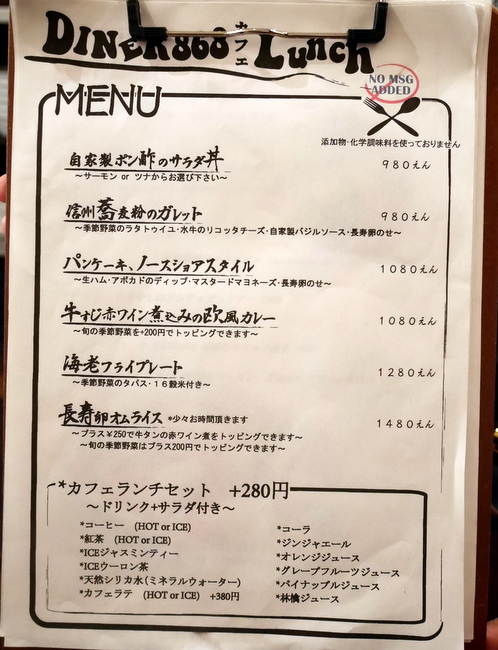 DINER868 カフェ Lunch
NO MSG ADDED
MENU
添加物・化学調味料を使っておりません
自家製ポン酢のサラダ丼 980えん
～サーモン or ツナからお選び下さい～
信州蕎麦粉のガレット 980えん
～季節野菜のラタトゥイユ・水牛のリコッタチーズ・自家製バジルソース・長寿卵のせ～
パンケーキ、ノースショアスタイル 1080えん
～生ハム・アボカドのディップ・マスタードマヨネーズ・長寿卵のせ～
牛すじ赤ワイン煮込みの欧風カレー 1080えん
～旬の季節野菜を+200円でトッピングできます～
海老フライプレート 1280えん
～季節野菜のタパス・16穀米付き～
長寿卵オムライス *少々お時間頂きます 1480えん
～プラス¥250で牛タンの赤ワイン煮をトッピングできます～
～旬の季節野菜はプラス200円でトッピングできます～
*カフェランチセット +280円
～ドリンク+サラダ付き～
*コーヒー (HOT or ICE)
*紅茶 (HOT or ICE)
*ICEジャスミンティー
*ICEウーロン茶
*天然シリカ水(ミネラルウォーター)
*カフェラテ (HOT or ICE) +380円
*コーラ
*ジンジャエール
*オレンジジュース
*グレープフルーツジュース
*パイナップルジュース
*林檎ジュース